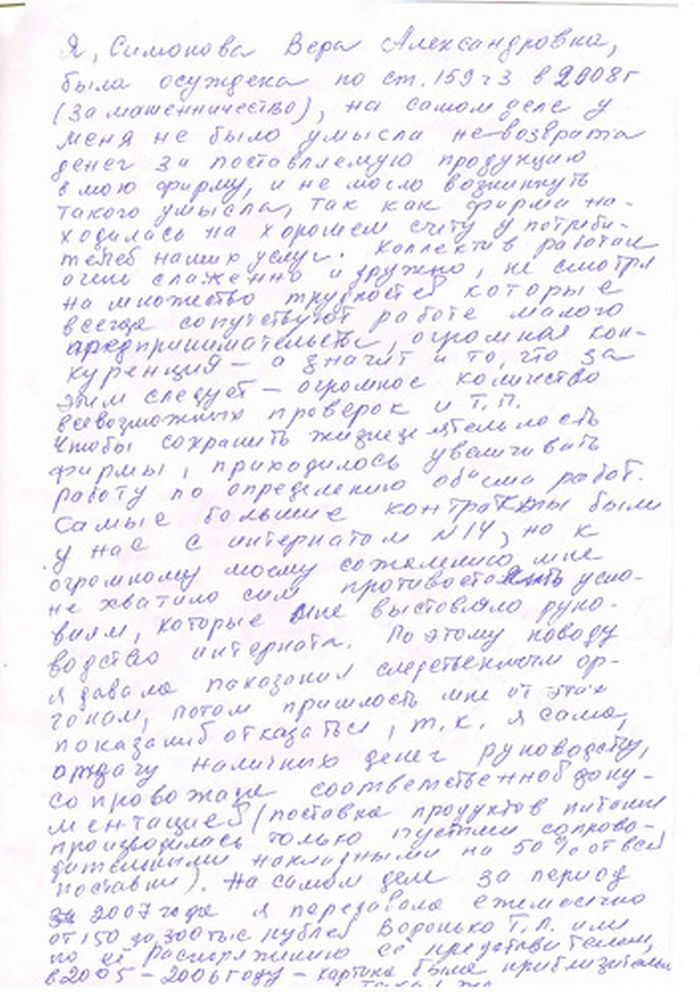 Я, Симонова Вера Александровна,
была осуждена по ст. 159 ч 3 в 2008 г
(за машенничество), на самом деле у
меня не было умысла невозврата
денег за поставляемую продукцию
в мою фирму, и не могло возникнуть
такого умысла, так как фирма на-
ходилась на хорошем счету у потреби-
телей наших услуг. Коллектив работал
очень слаженно и дружно, не смотря
на множество трудностей которые
всегда сопутствуют работе малого
предпринимательства, огромная кон-
куренция - а значит и то, что за
этим следует - огромное количество
всевозможных проверок и т.п.
Чтобы сохранить жизнедеятельность
фирмы, приходилось увеличивать
работу по определению объема работ.
Самые большие контракты были
у нас с интернатом N 14, но к
огромному моему сожалению мне
не хватило сил противостоять усло-
виям, которые мне выставляло руко-
водство интерната. По этому поводу
я давала показания следственным ор-
ганам, потом пришлось мне от этих
показаний отказаться, т.к. я сама,
отдачу наличных денег руководству,
сопровожала соответственной доку-
ментацией (поставка продуктов питания
производилась только пустыми сопрово-
дительными накладными на 50% от всей
поставки). На самом деле за период
за 2007 года я передавала ежемесячно
от 150 до 300 тыс рублей Воронько Т.Л. или
по её распоряжению её представителям,
в 2005 - 2006 году - картина была приблизительно
такая же